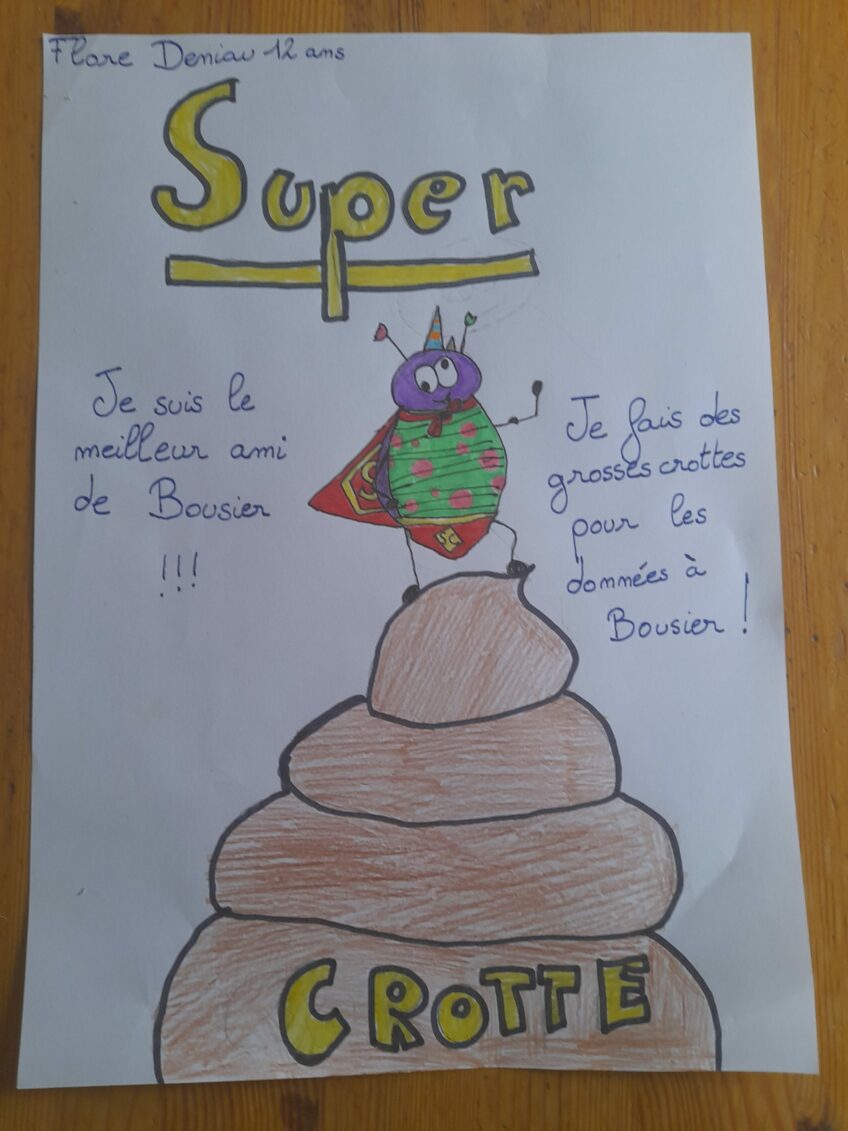 Flore Deniau 12 ans
Super
Je suis le
meilleur ami
de Bousier
!!!
Je fais des
grosses crottes
pour les
données à
Bousier !
S
SC
CROTTE